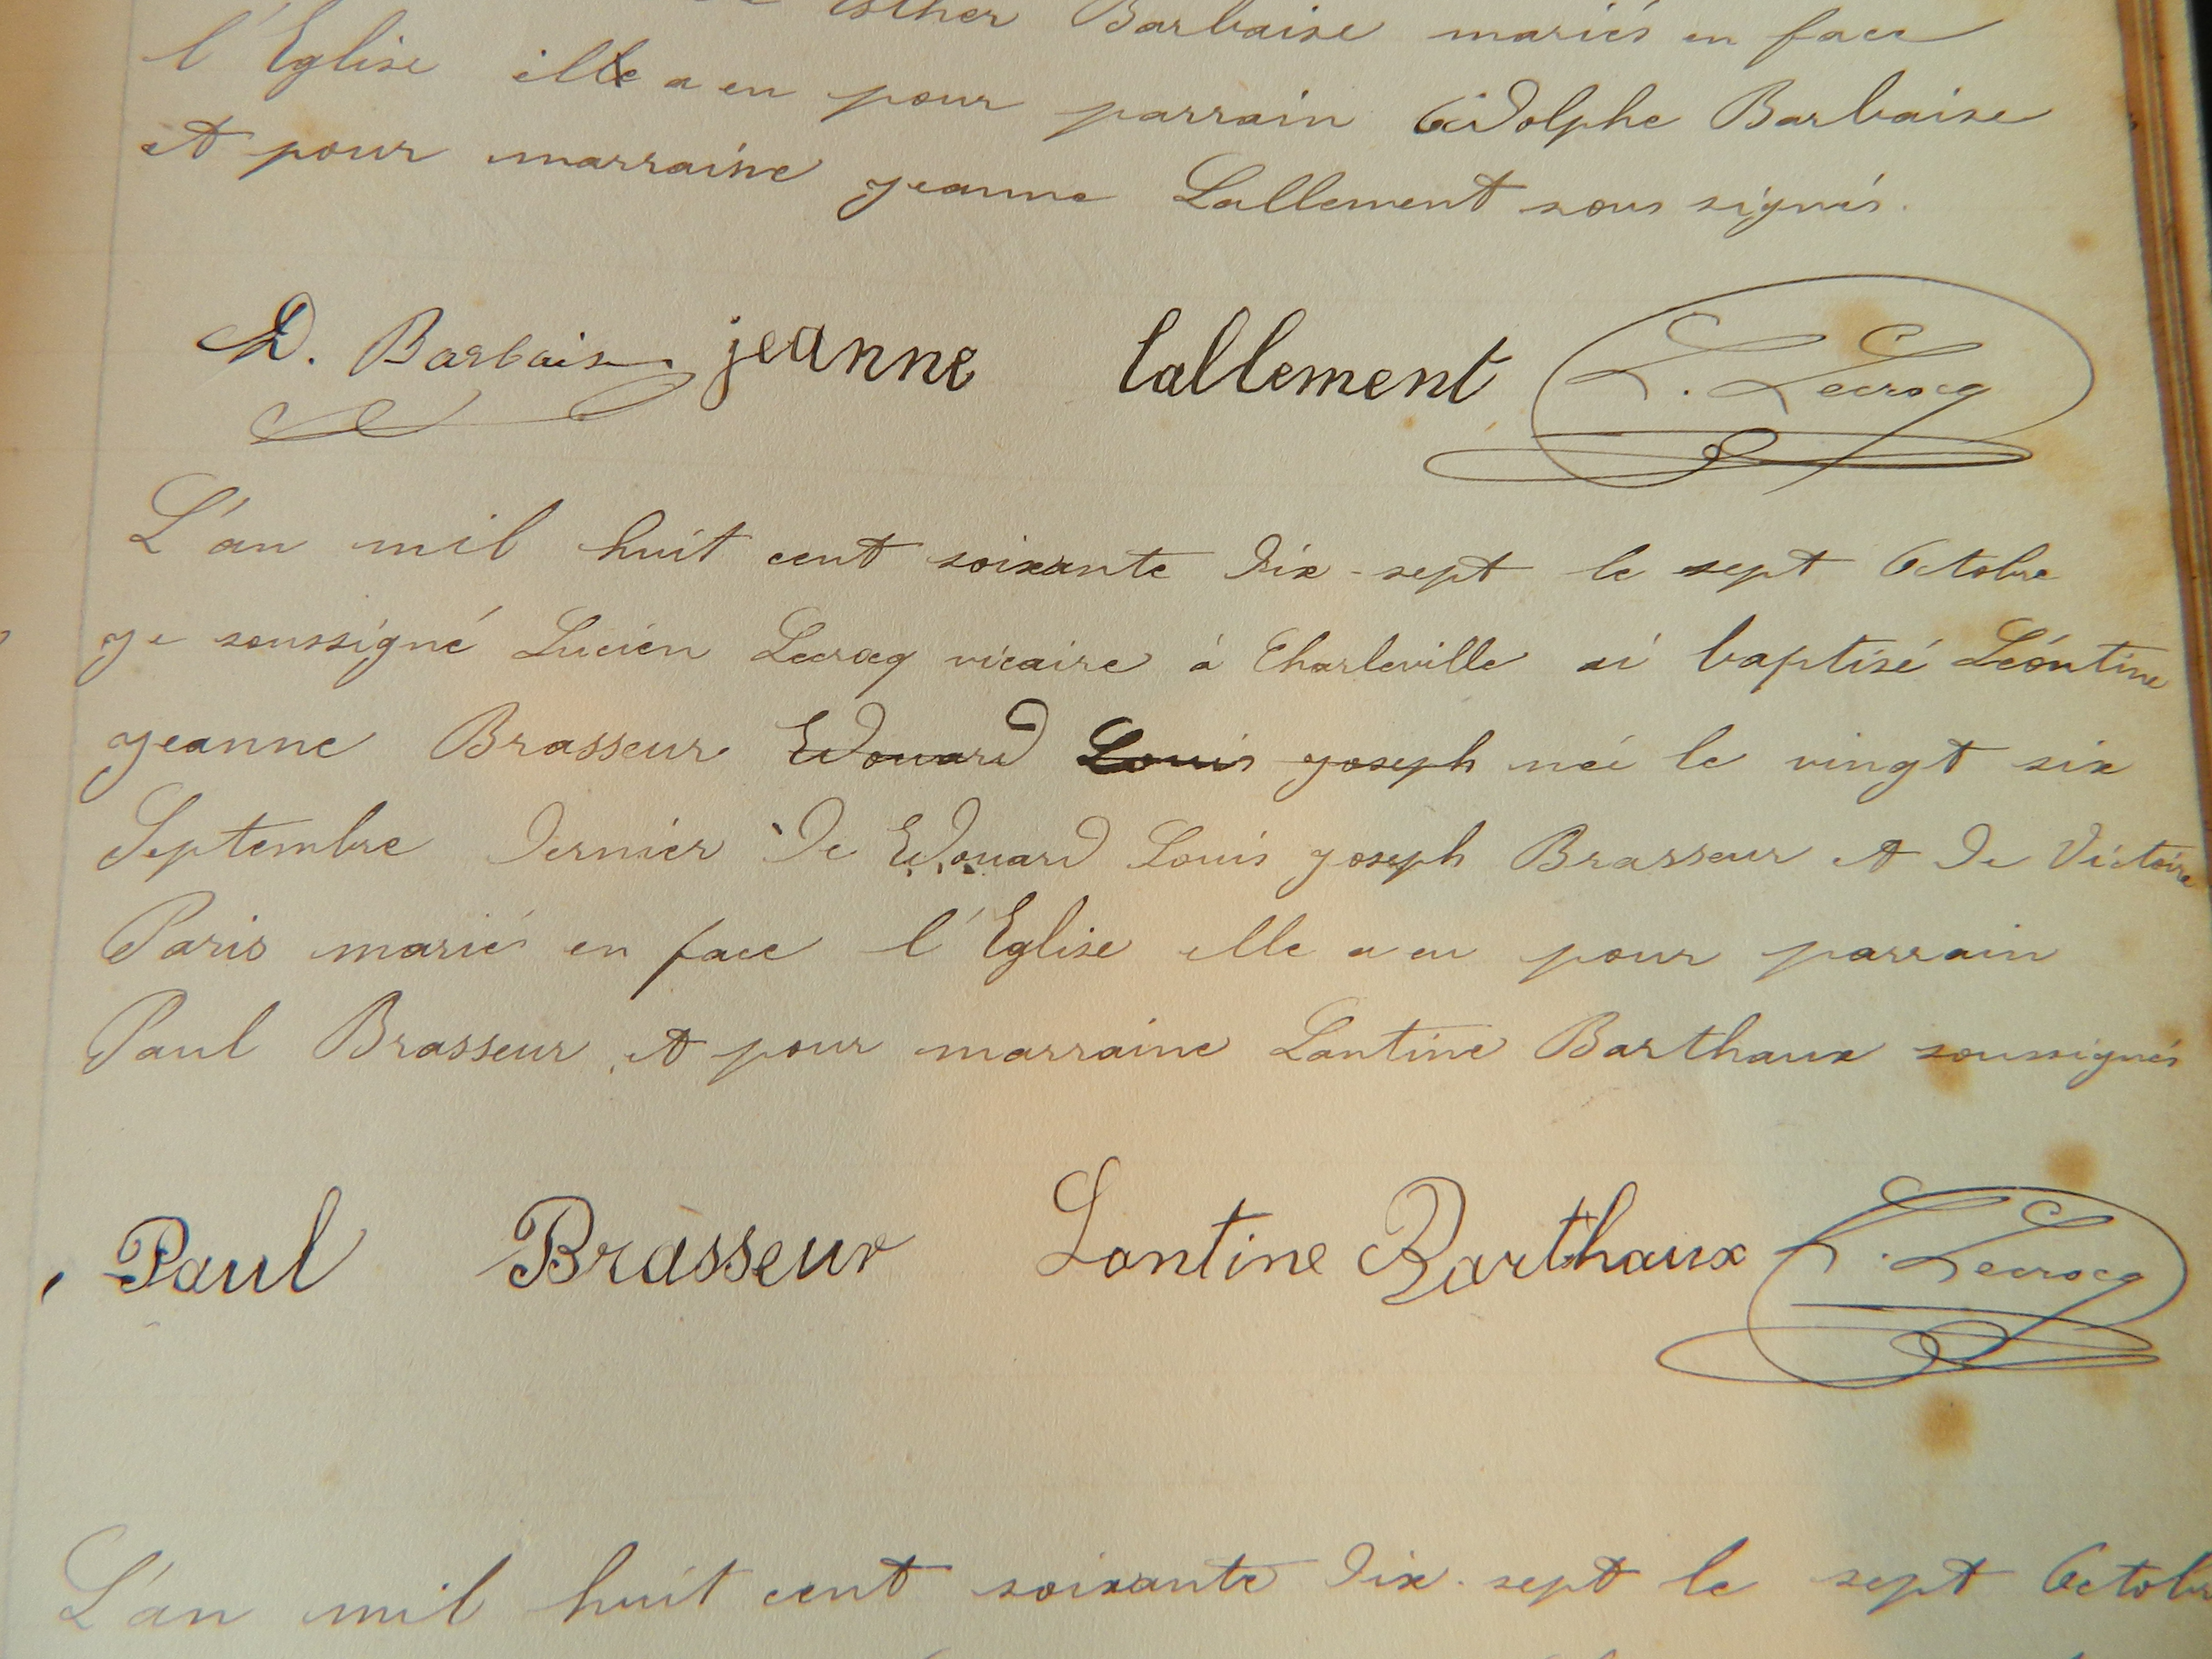 Esther Barbaise mariés en face
l'Eglise elle a eu pour parrain Adolphe Barbaise
et pour marraine jeanne Lallement sous signés.
A. Barbaise jeanne lallement L. Lecrocq
L'an mil huit cent soixante dix-sept le sept Octobre
je soussigné Lucien Lecrocq vicaire à Charleville ai baptisé Léontine
jeanne Brasseur Edouard Louis joseph née le vingt six
Septembre dernier de Edouard Louis joseph Brasseur et de Victoire
Paris mariés en face l'Eglise elle a eu pour parrain
Paul Brasseur et pour marraine Lantine Barthaux soussignés
Paul Brasseur Lantine Barthaux L. Lecrocq
L'an mil huit cent soixante dix-sept le sept Octobre